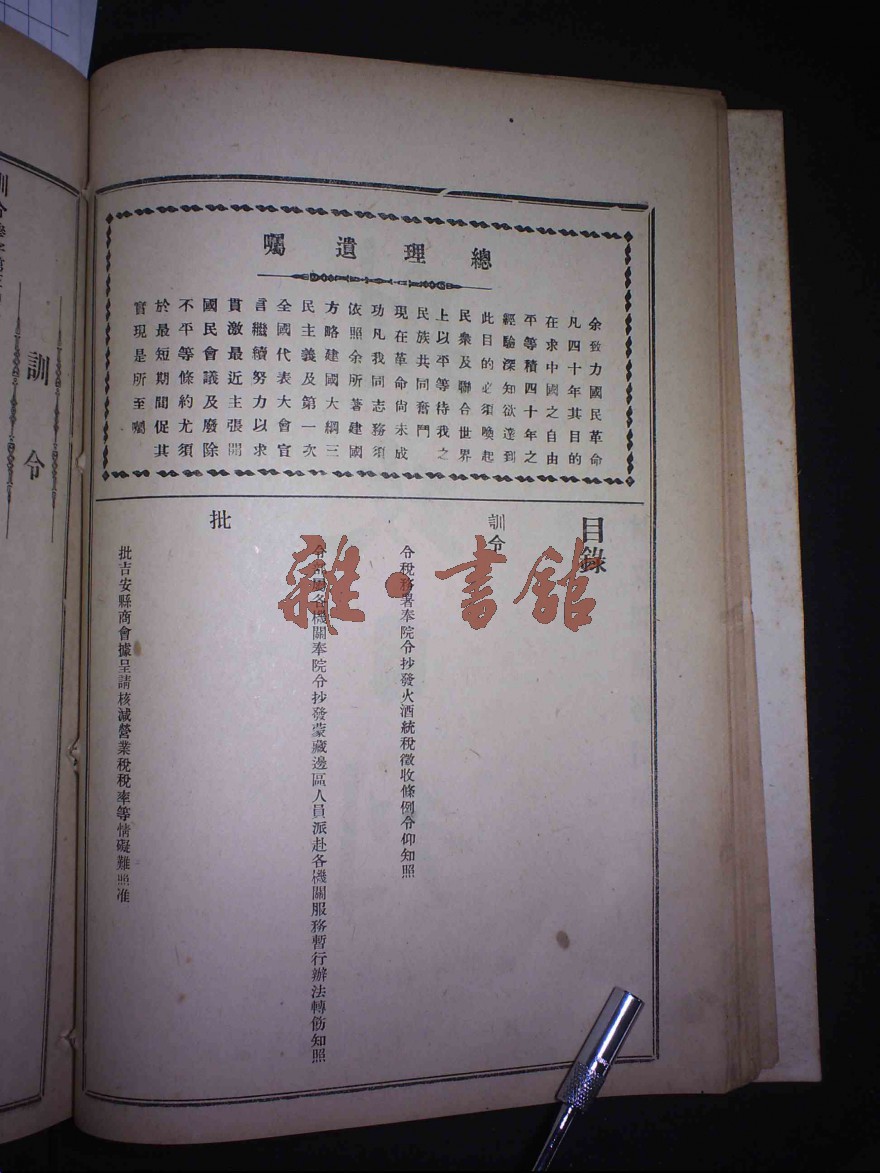 總理遺囑
余致力國民革命
凡四十年其目的
在求中國之自由
平等積四十年之
經驗深知欲達到
此目的必須喚起
民衆及聯合世界
上以平等待我之
民族共同奮鬥
現在革命尚未成
功凡我同志務須
依照余所著建國
方略建國大綱三
民主義及第一次
全國代表大會宣
言繼續努力以求
貫澈最近主張開
國民會議及廢除
不平等條約尤須
於最短期間促其
實現是所至囑
目錄
訓令
令稅務署奉院令抄發火酒統稅徵收條例令仰知照
各機關奉院令抄發蒙藏邊區人員派赴各機關服務暫行辦法轉飭知照
批
批吉安縣商會據呈請核減營業稅稅率等情礙難照准
訓令
訓令
雜·書舘